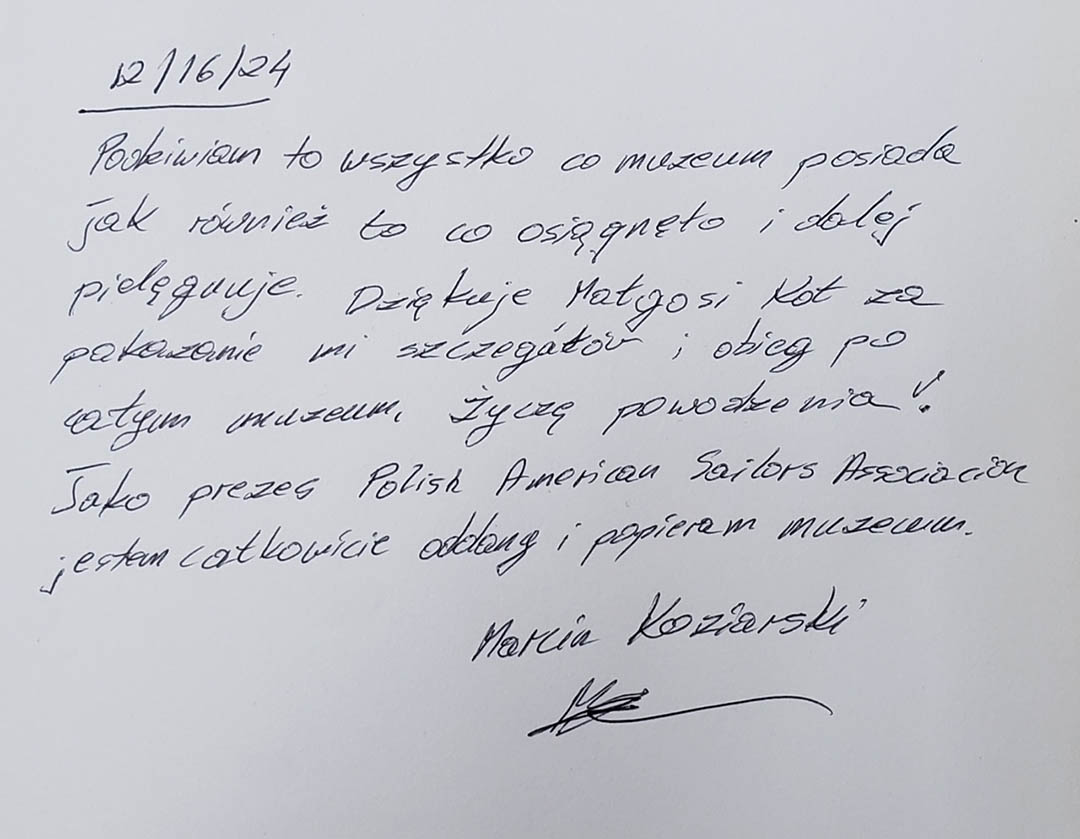 12/16/24
Podziwiam to wszystko co muzeum posiada
jak również to co osiągnęto i dalej
pielęgnuje. Dziękuje Małgosi Kot za
pokazanie mi szczegółów i obieg po
całym muzeum. Życzę powodzenia!
Jako prezes Polish American Sailors Associacion
jestem całkowicie oddany i popieram muzeum.
Marcin Koziarski